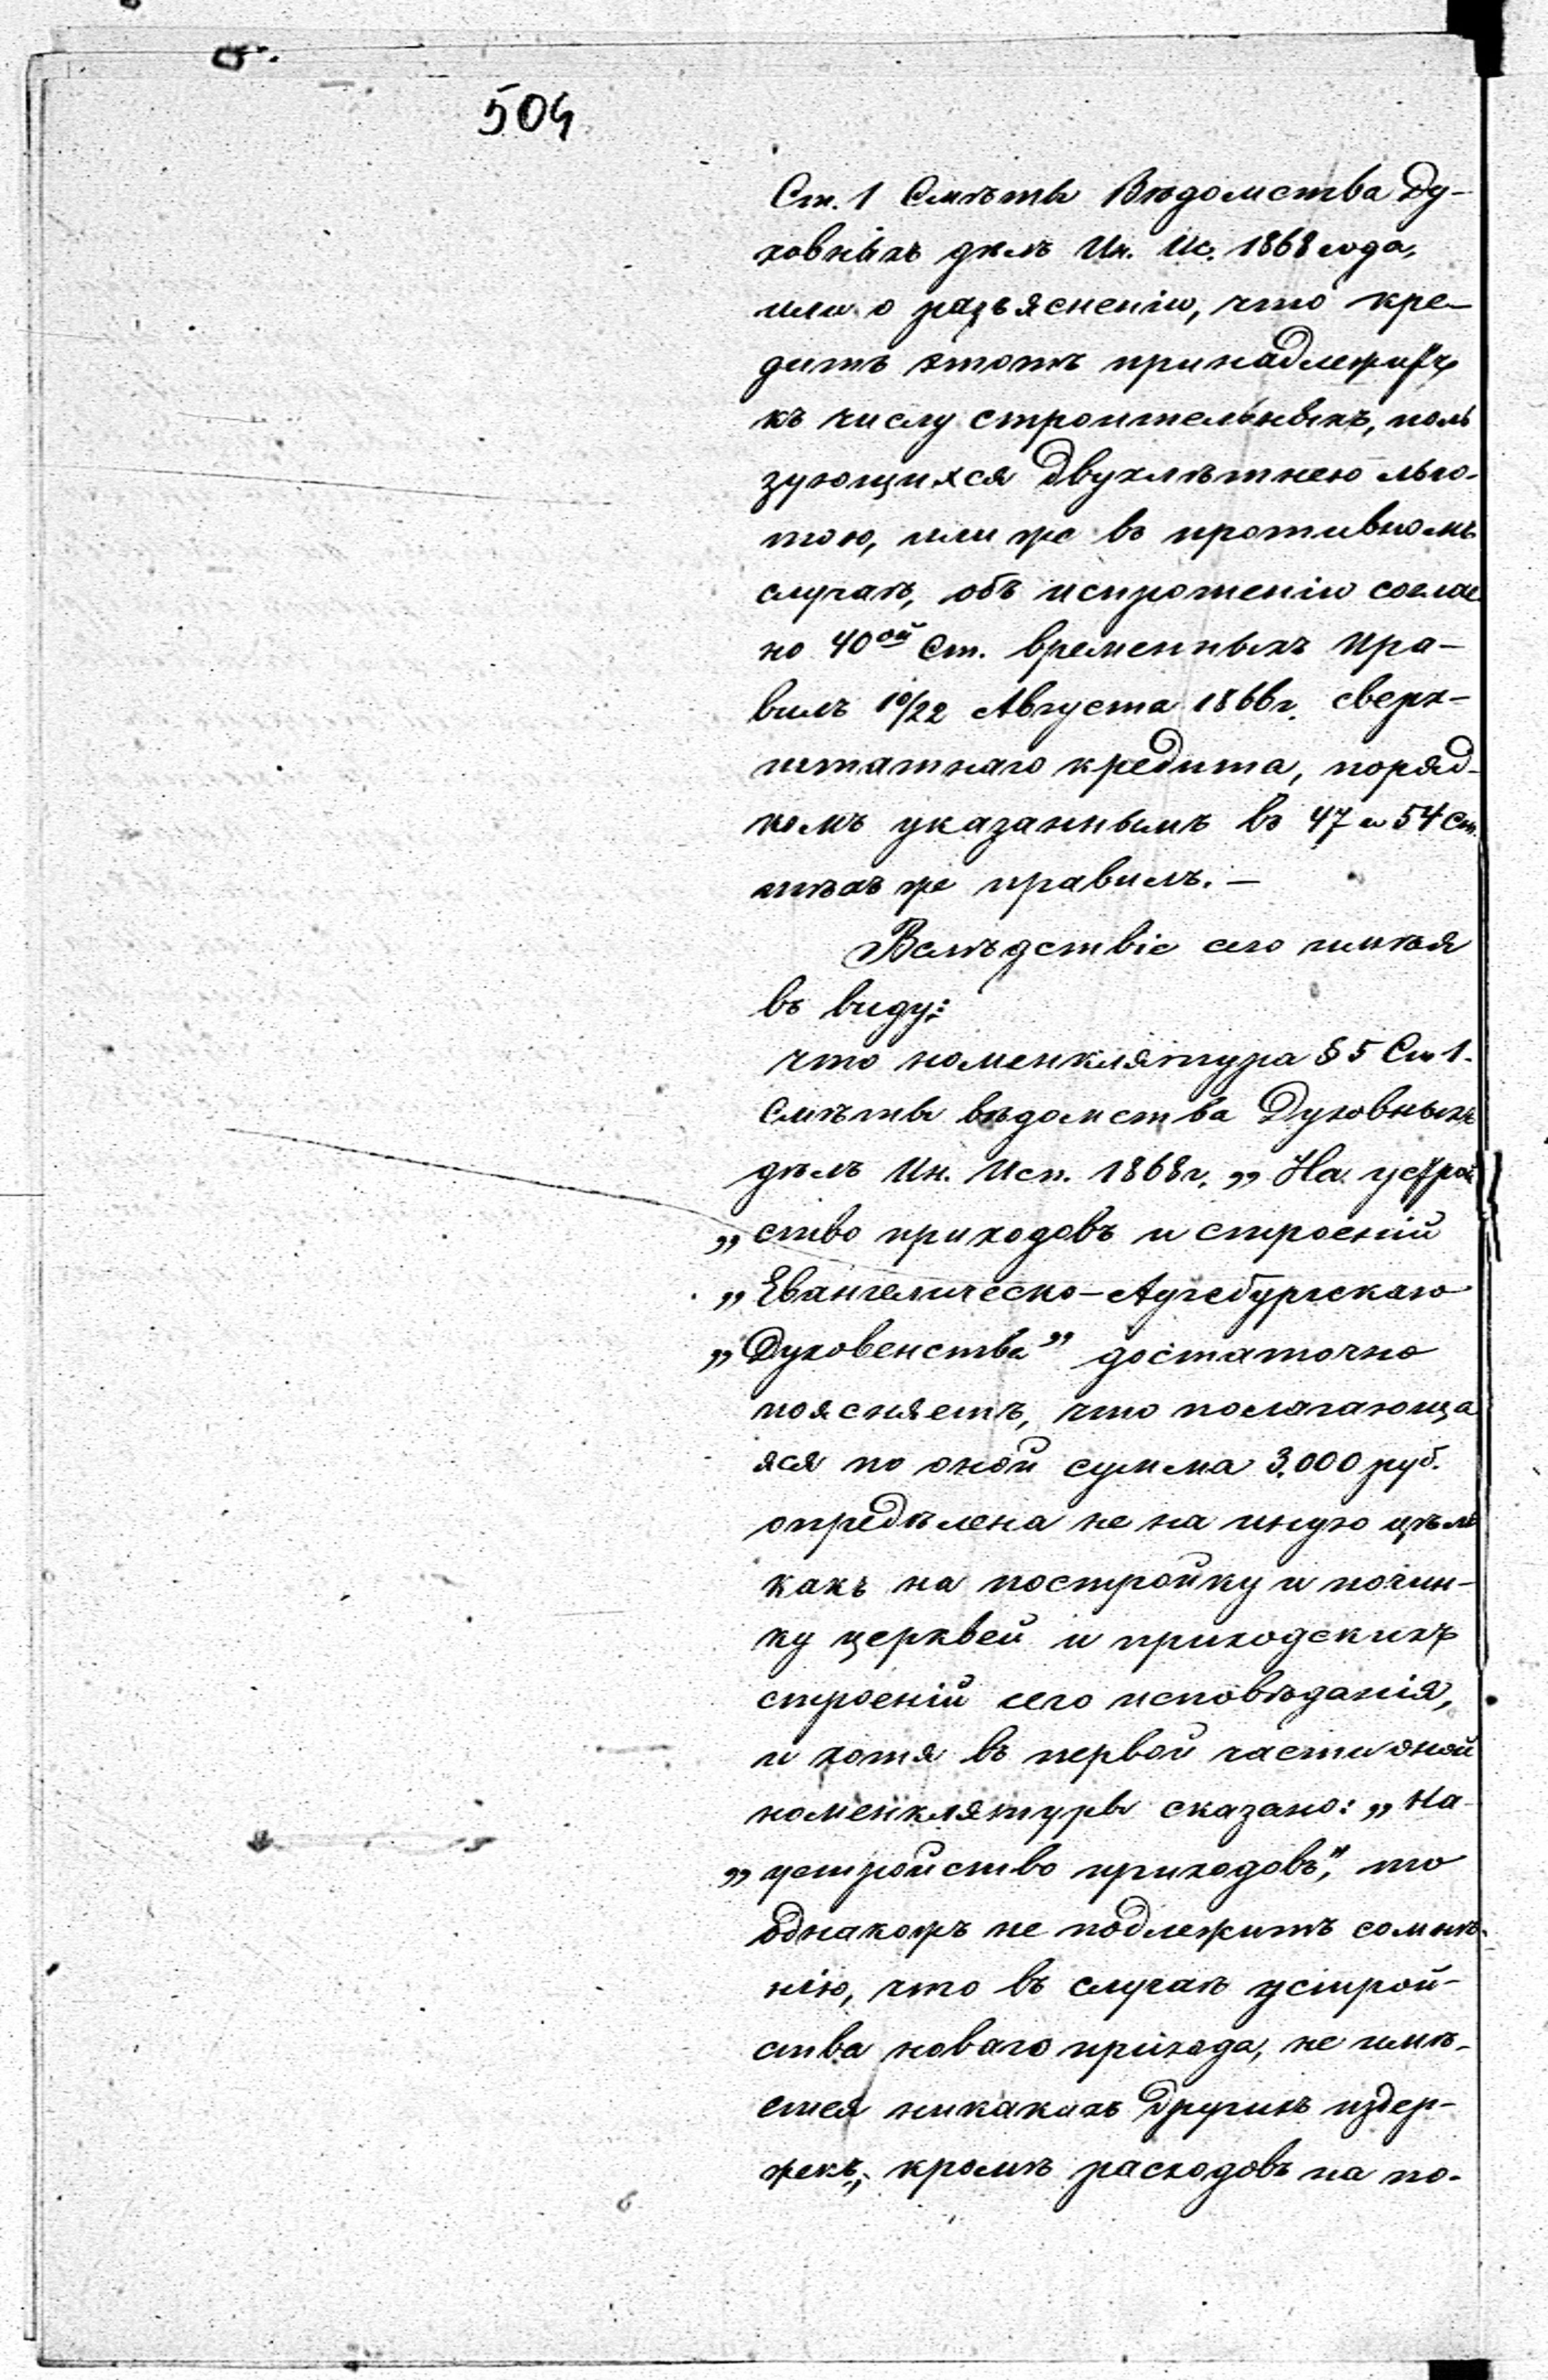 504
Ст. 1 Смѣты Вѣдомства Ду-
ховныхъ дѣлъ Ин. Ис. 1868 года,
или о разъясненіи, что кре-
дитъ этотъ принадлежитъ
къ числу строительныхъ, поль
зующихся двухлѣтнею льго-
тою, или же въ противномъ
случаѣ, объ испрошеніи соглас
но 40ой Ст. временныхъ пра-
вилъ 10/22 Августа 1866 г. сверх-
штатнаго кредита, поряд-
комъ указаннымъ въ 47 и 54 ст.
тѣхъ же правилъ. —
Вслѣдствіе сего имѣя
въ виду:
что номенклятура § 5 Ст 1.
Смѣты вѣдомства Духовныхъ
дѣлъ Ин. Исп. 1868 г. „На устрой
„ство приходовъ и строеній
„Евангелическо-Аугсбургскаго
„Духовенства" достаточно
поясняетъ, что полагающа
яся по оной сумма 3.000 руб.
опредѣлена не на иную цѣль
какъ на постройку и почин-
ку церквей и приходскихъ
строеній сего исповѣданія,
и хотя въ первой части оной
номенклятуры сказано: „На
„устройство приходовъ", то
однакожъ не подлежитъ сомнѣ-
нію, что въ случаѣ устрой-
ства новаго прихода, не имѣ-
ется никакихъ другихъ издер-
жекъ, кромѣ расходовъ на по-